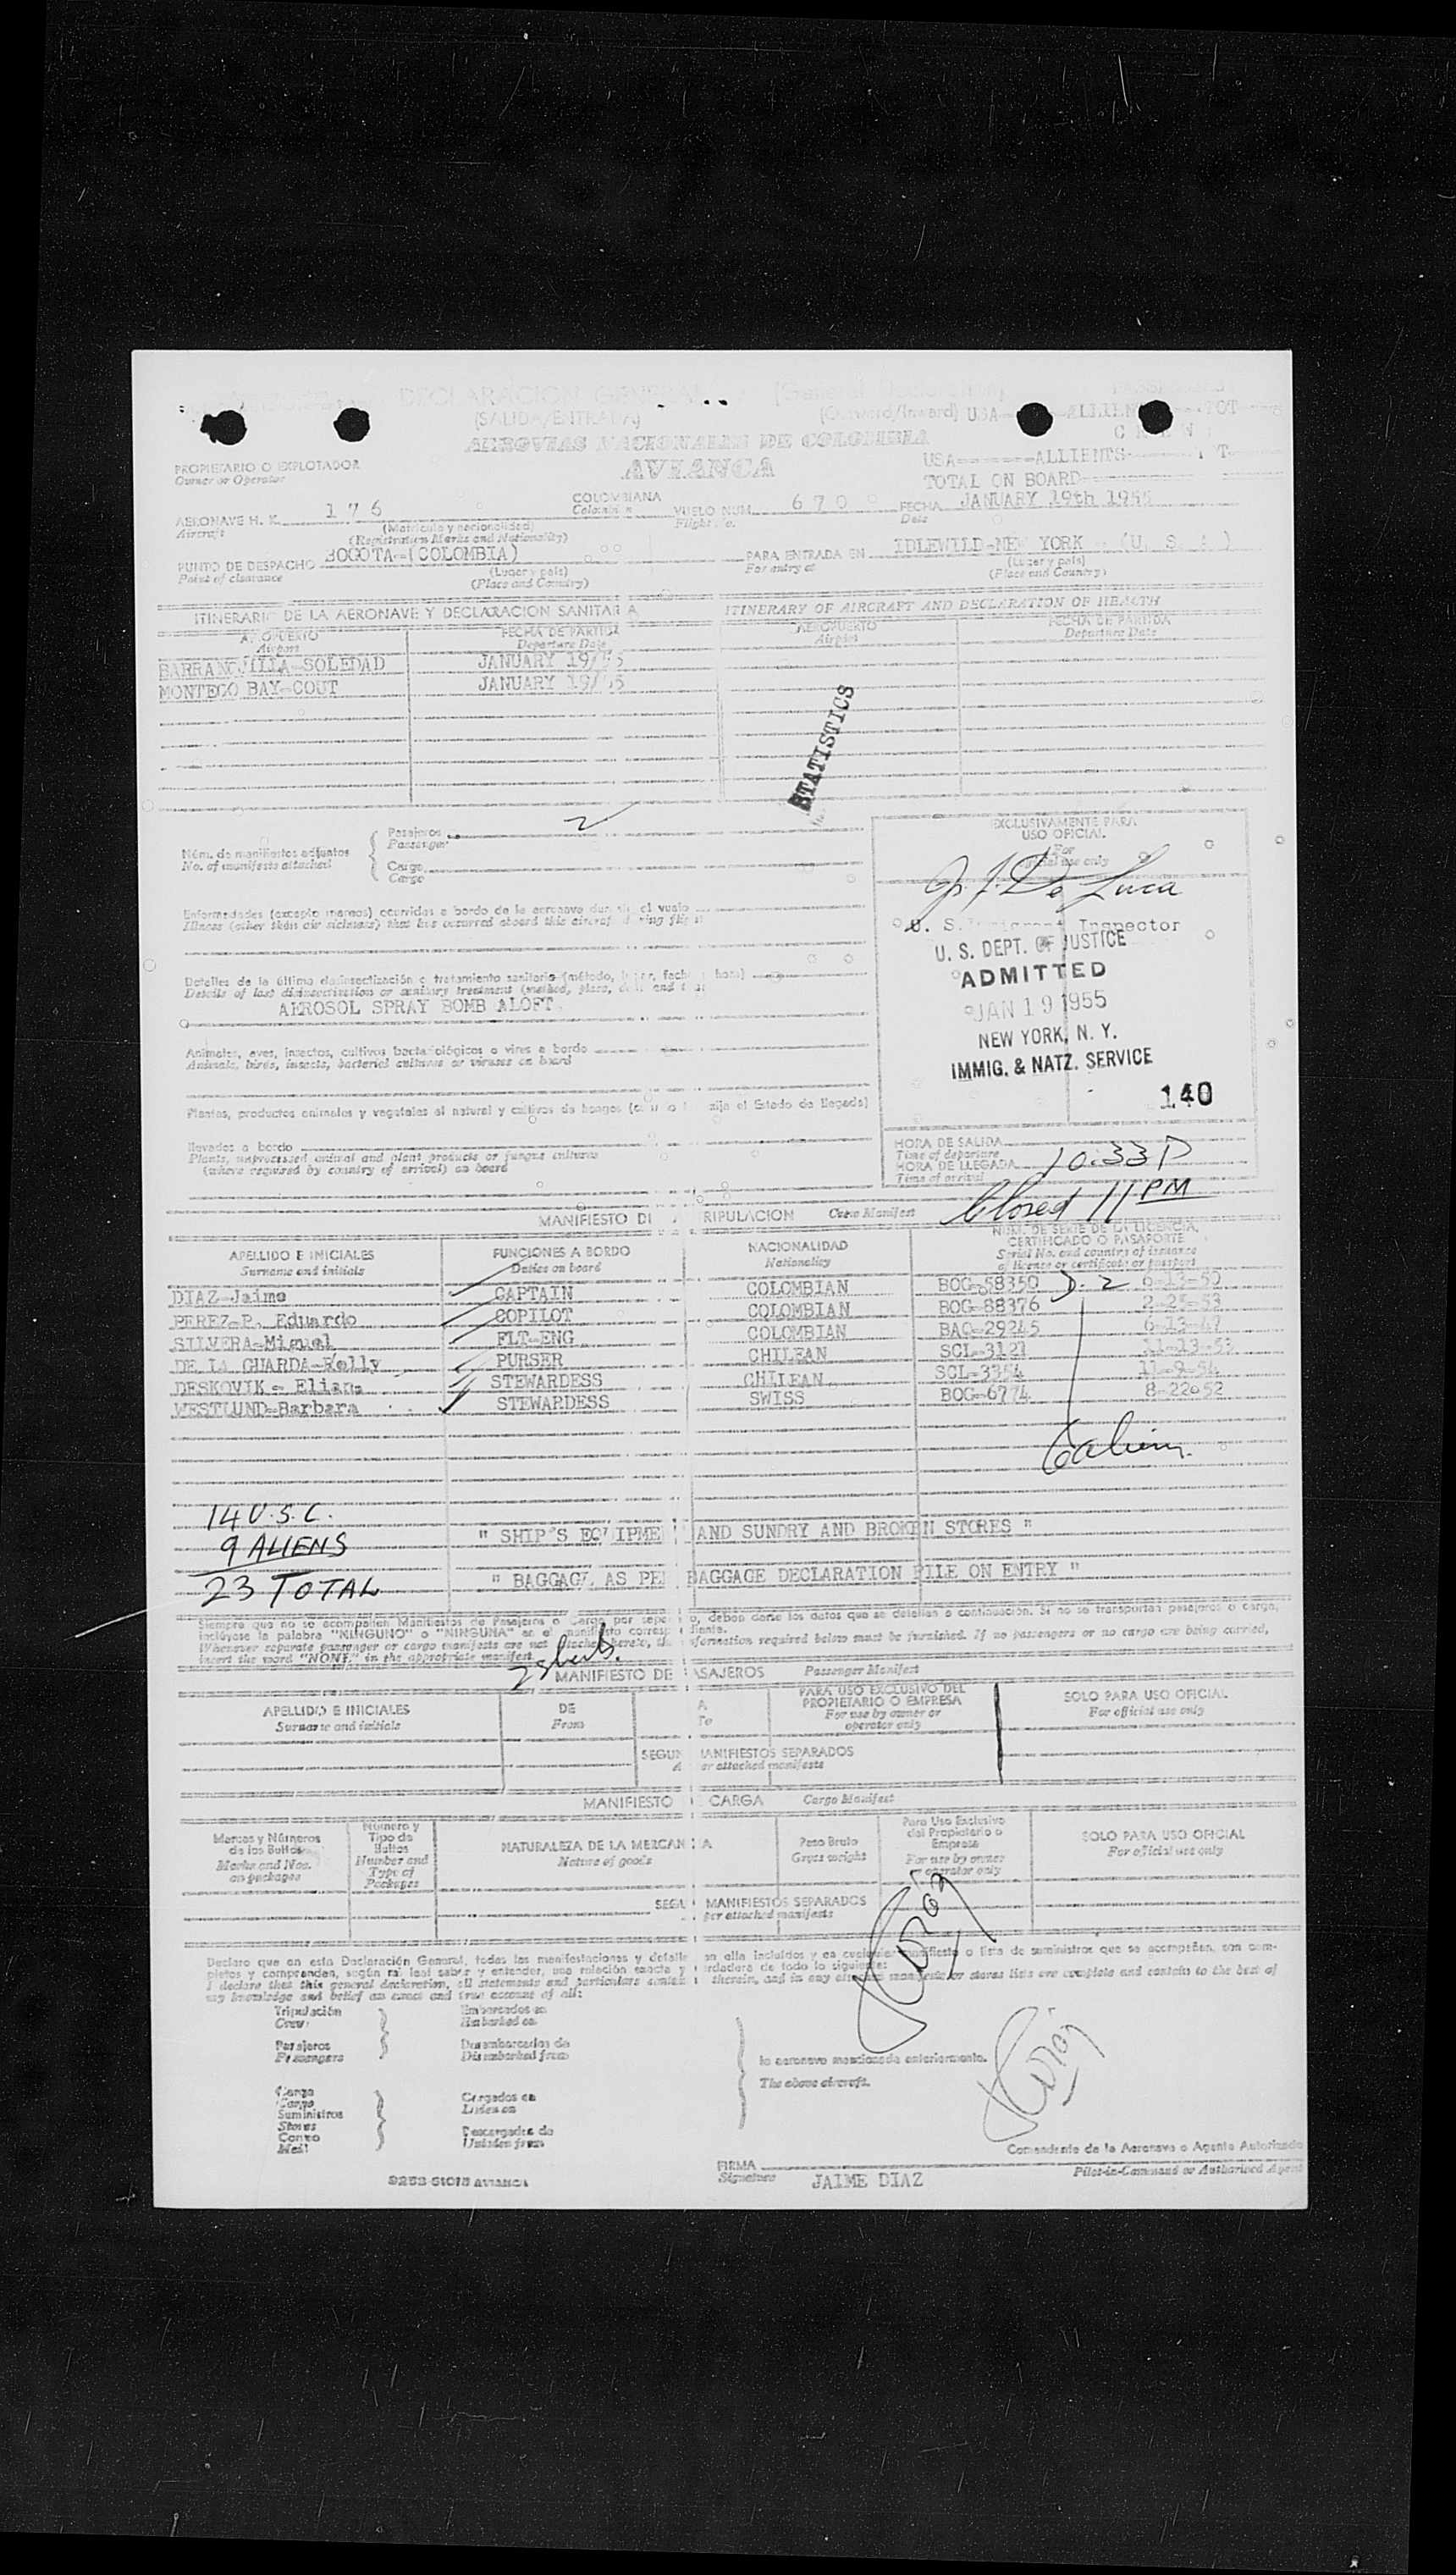 DECLARACION GENERAL (General Declaration)
(SALIDA/ENTRADA) (Outward/Inward) USA
AEROVIAS NACIONALES DE COLOMBIA
AVIANCA
USA ALLIENTS
TOTAL ON BOARD
PROPIETARIO O EXPLOTADOR
Owner or Operator
AERONAVE H. K. 176 COLOMBIANA VUELO NUM. 670 FECHA JANUARY 19th 1955
Aircraft (Matrícula y nacionalidad) Flight No. Date
(Registration Marks and Nationality)
PUNTO DE DESPACHO BOGOTA-(COLOMBIA) PARA ENTRADA EN IDLEWILD-NEW YORK (U. S. )
Point of clearance (Lugar y país) For entry at (Lugar y país)
(Place and Country) (Place and Country)
ITINERARIO DE LA AERONAVE Y DECLARACION SANITARIA ITINERARY OF AIRCRAFT AND DECLARATION OF HEALTH
AEROPUERTO FECHA DE PARTIDA AEROPUERTO FECHA DE PARTIDA
Airport Departure Date Airport Departure Date
BARRANQUILLA-SOLEDAD JANUARY 19/55
MONTEGO BAY-COUT JANUARY 19/55
STATISTICS
Pasajeros 2
Passenger
Núm. de manifiestos adjuntos
No. of manifests attached
Carga
Cargo
EXCLUSIVAMENTE PARA
USO OFICIAL
For
official use only
De Luca
U. S. Inspector
Enfermedades (excepto mareos) ocurridas a bordo de la aeronave el vuelo
Illness (other than air sickness) that has occurred aboard this aircraft during flight
U. S. DEPT. OF JUSTICE
ADMITTED
JAN 19 1955
NEW YORK, N. Y.
IMMIG. & NATZ. SERVICE
140
Detalles de la última desinsectización o tratamiento sanitario (método, hora)
Details of last disinsectization or sanitary treatment (method, place, date and
AEROSOL SPRAY BOMB ALOFT.
Animales, aves, insectos, cultivos bacteriológicos o virus a bordo
Animals, birds, insects, bacterial cultures or viruses on board
Plantas, productos animales y vegetales al natural y cultivos de hongos el Estado de llegada)
llevados a bordo
Plants, unprocessed animal and plant products or fungus cultures
(where required by country of arrival) on board
HORA DE SALIDA
Time of departure
HORA DE LLEGADA 10:33 P
Time of arrival
Closed 11 PM
MANIFIESTO DE TRIPULACION Crew Manifest
APELLIDO E INICIALES FUNCIONES A BORDO NACIONALIDAD NUM. DE SERIE DE LA LICENCIA, CERTIFICADO O PASAPORTE
Surname and initials Duties on board Nationality Serial No. and country of issuance of licence or certificate or passport
DIAZ-Jaime CAPTAIN COLOMBIAN BOG-58350 D-2 6-13-50
PEREZ-P. Eduardo COPILOT COLOMBIAN BOG-88376 2-25-53
SILVERA-Miguel FLT-ENG COLOMBIAN BAQ-29245 6-13-47
DE LA GUARDA-Kelly PURSER CHILEAN SCL-3121 11-13-53
DESKOVIK- Eliana STEWARDESS CHILEAN SCL-3354 11-9-54
WESTLUND-Barbara STEWARDESS SWISS BOG-6774 8-22-52
14 U.S.C.
9 ALIENS
23 TOTAL
" SHIP'S EQUIPMENT AND SUNDRY AND BROKEN STORES "
" BAGGAGE, AS PER BAGGAGE DECLARATION FILE ON ENTRY "
Siempre que no se acompañen Manifiestos de Pasajeros o Carga por separado, deben darse los datos que se detallan a continuación. Si no se transportan pasajeros o carga,
inclúyase la palabra "NINGUNO" o "NINGUNA" en el manifiesto correspondiente.
Whenever separate passenger or cargo manifests are not attached hereto, the information required below must be furnished. If no passengers or no cargo are being carried,
insert the word "NONE" in the appropriate manifest.
MANIFIESTO DE PASAJEROS Passenger Manifest
APELLIDO E INICIALES DE A PARA USO EXCLUSIVO DEL PROPIETARIO O EMPRESA SOLO PARA USO OFICIAL
Surname and initials From To For use by owner or operator only For official use only
SEGUN MANIFIESTOS SEPARADOS
attached manifests
MANIFIESTO CARGA Cargo Manifest
Marcas y Números de los Bultos Número y Tipo de Bultos NATURALEZA DE LA MERCANCIA Peso Bruto Para Uso Exclusivo del Propietario o Empresa SOLO PARA USO OFICIAL
Marks and Nos. on packages Number and Type of Packages Nature of goods Gross weight For use by owner or operator only For official use only
SEGUN MANIFIESTOS SEPARADOS
per attached manifests
Declaro que en esta Declaración General, todas las manifestaciones y detalles en ella incluidos y en cualquier manifiesto o lista de suministros que se acompañen, son com-
pletos y comprenden, según mi leal saber y entender, una relación exacta y verdadera de todo lo siguiente:
I declare that this general declaration, all statements and particulars contained therein, and in any attached manifests or stores lists are complete and contain to the best of
my knowledge and belief an exact and true account of all:
Tripulación Embarcados en
Crew Embarked on
Pasajeros Desembarcados de
Passengers Disembarked from
la aeronave mencionada anteriormente.
The above aircraft.
Carga Cargados en
Cargo Laden on
Suministros
Stores Descargados de
Correo Unladen from
Mail
Comandante de la Aeronave o Agente Autorizado
FIRMA
Signature JAIME DIAZ Pilot-in-Command or Authorized Agent
AVIANCA